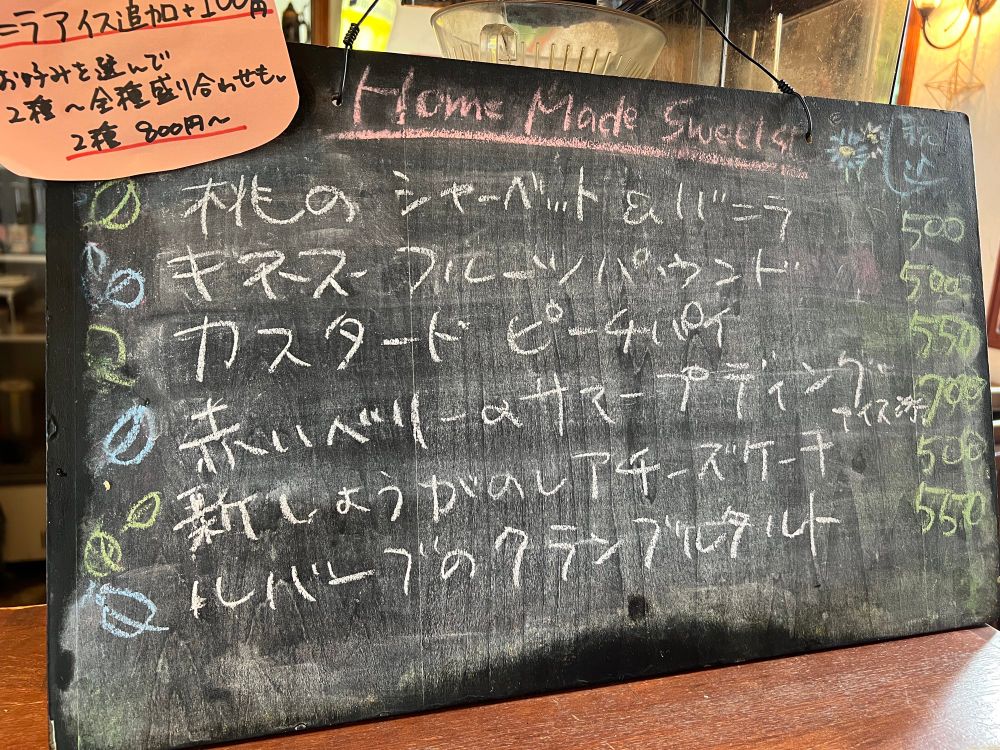 ニラアイス追加+100円
お好みを選んで
2種～全種盛り合わせも。
2種 800円～
Home Made Sweets
税込
桃の シャーベット&バニラ 500
ギネース フルーツパウンド 500
カスタード ピーチパイ 550
赤いベリーのサマープディング アイス添 700
新しょうがのレアチーズケーキ 500
ルバーブのクランブルタルト 550